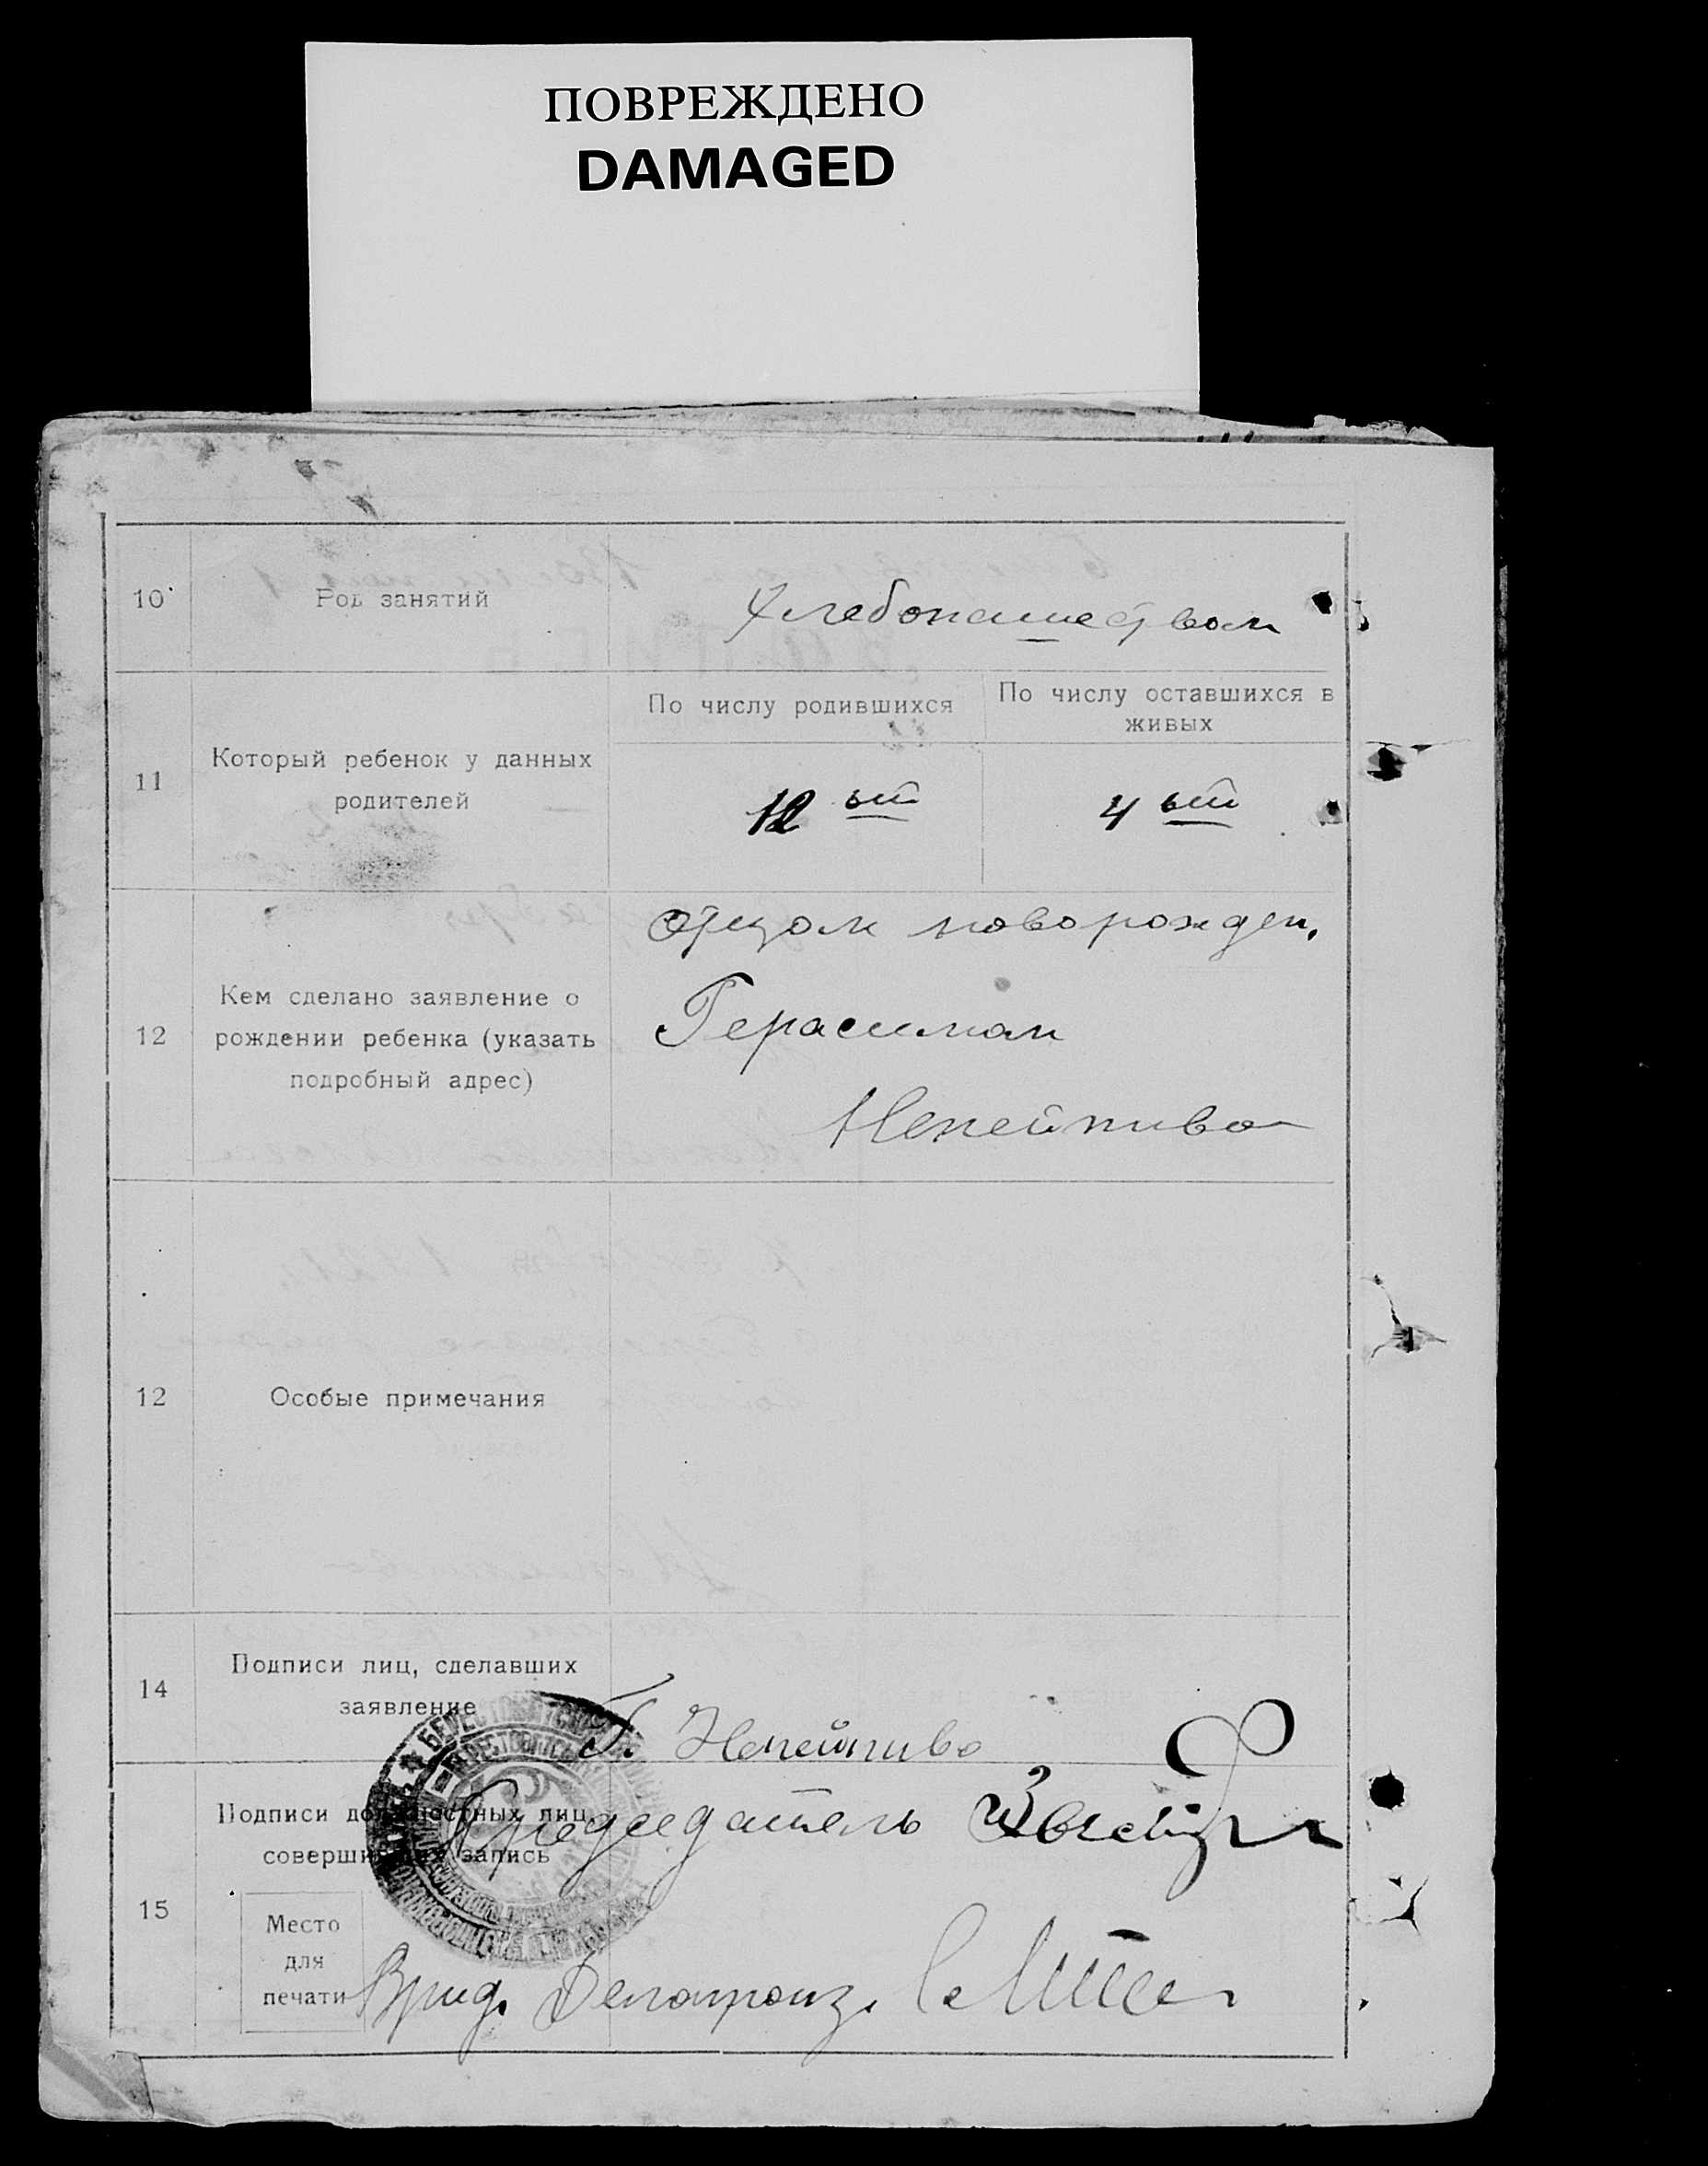 ПОВРЕЖДЕНО
DAMAGED
10
Род занятий
Хлебопашеством
11
Который ребенок у данных
родителей
По числу родившихся
По числу оставшихся в
живых
12 ый
4 ый
12
Кем сделано заявление о
рождении ребенка (указать
подробный адрес)
Отцом новорожден.
Герасимом
Непейпиво
12
Особые примечания
14
Подписи лиц, сделавших
заявление
Г. Непейпиво
15
Подписи должностных лиц,
совершивших запись
Председатель
Место
для
печати
Врид. Делопроиз.